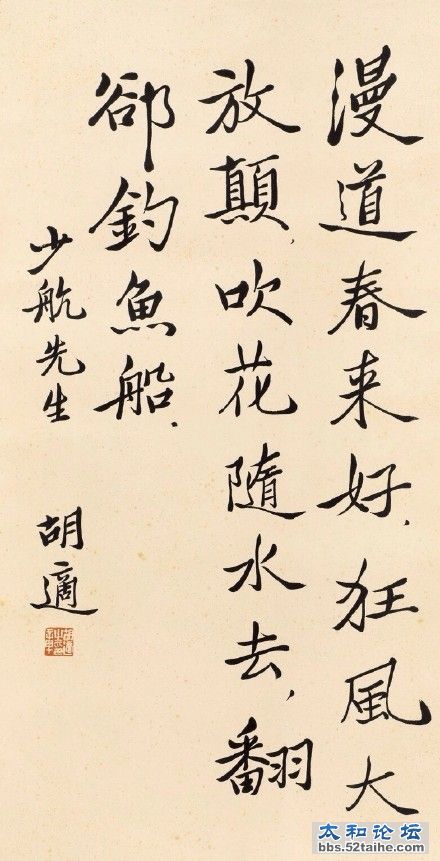 漫道春来好，狂風大
放顛，吹花隨水去，翻
郤釣魚船．
少航先生
胡適
太和论坛
bbs.52taihe.com